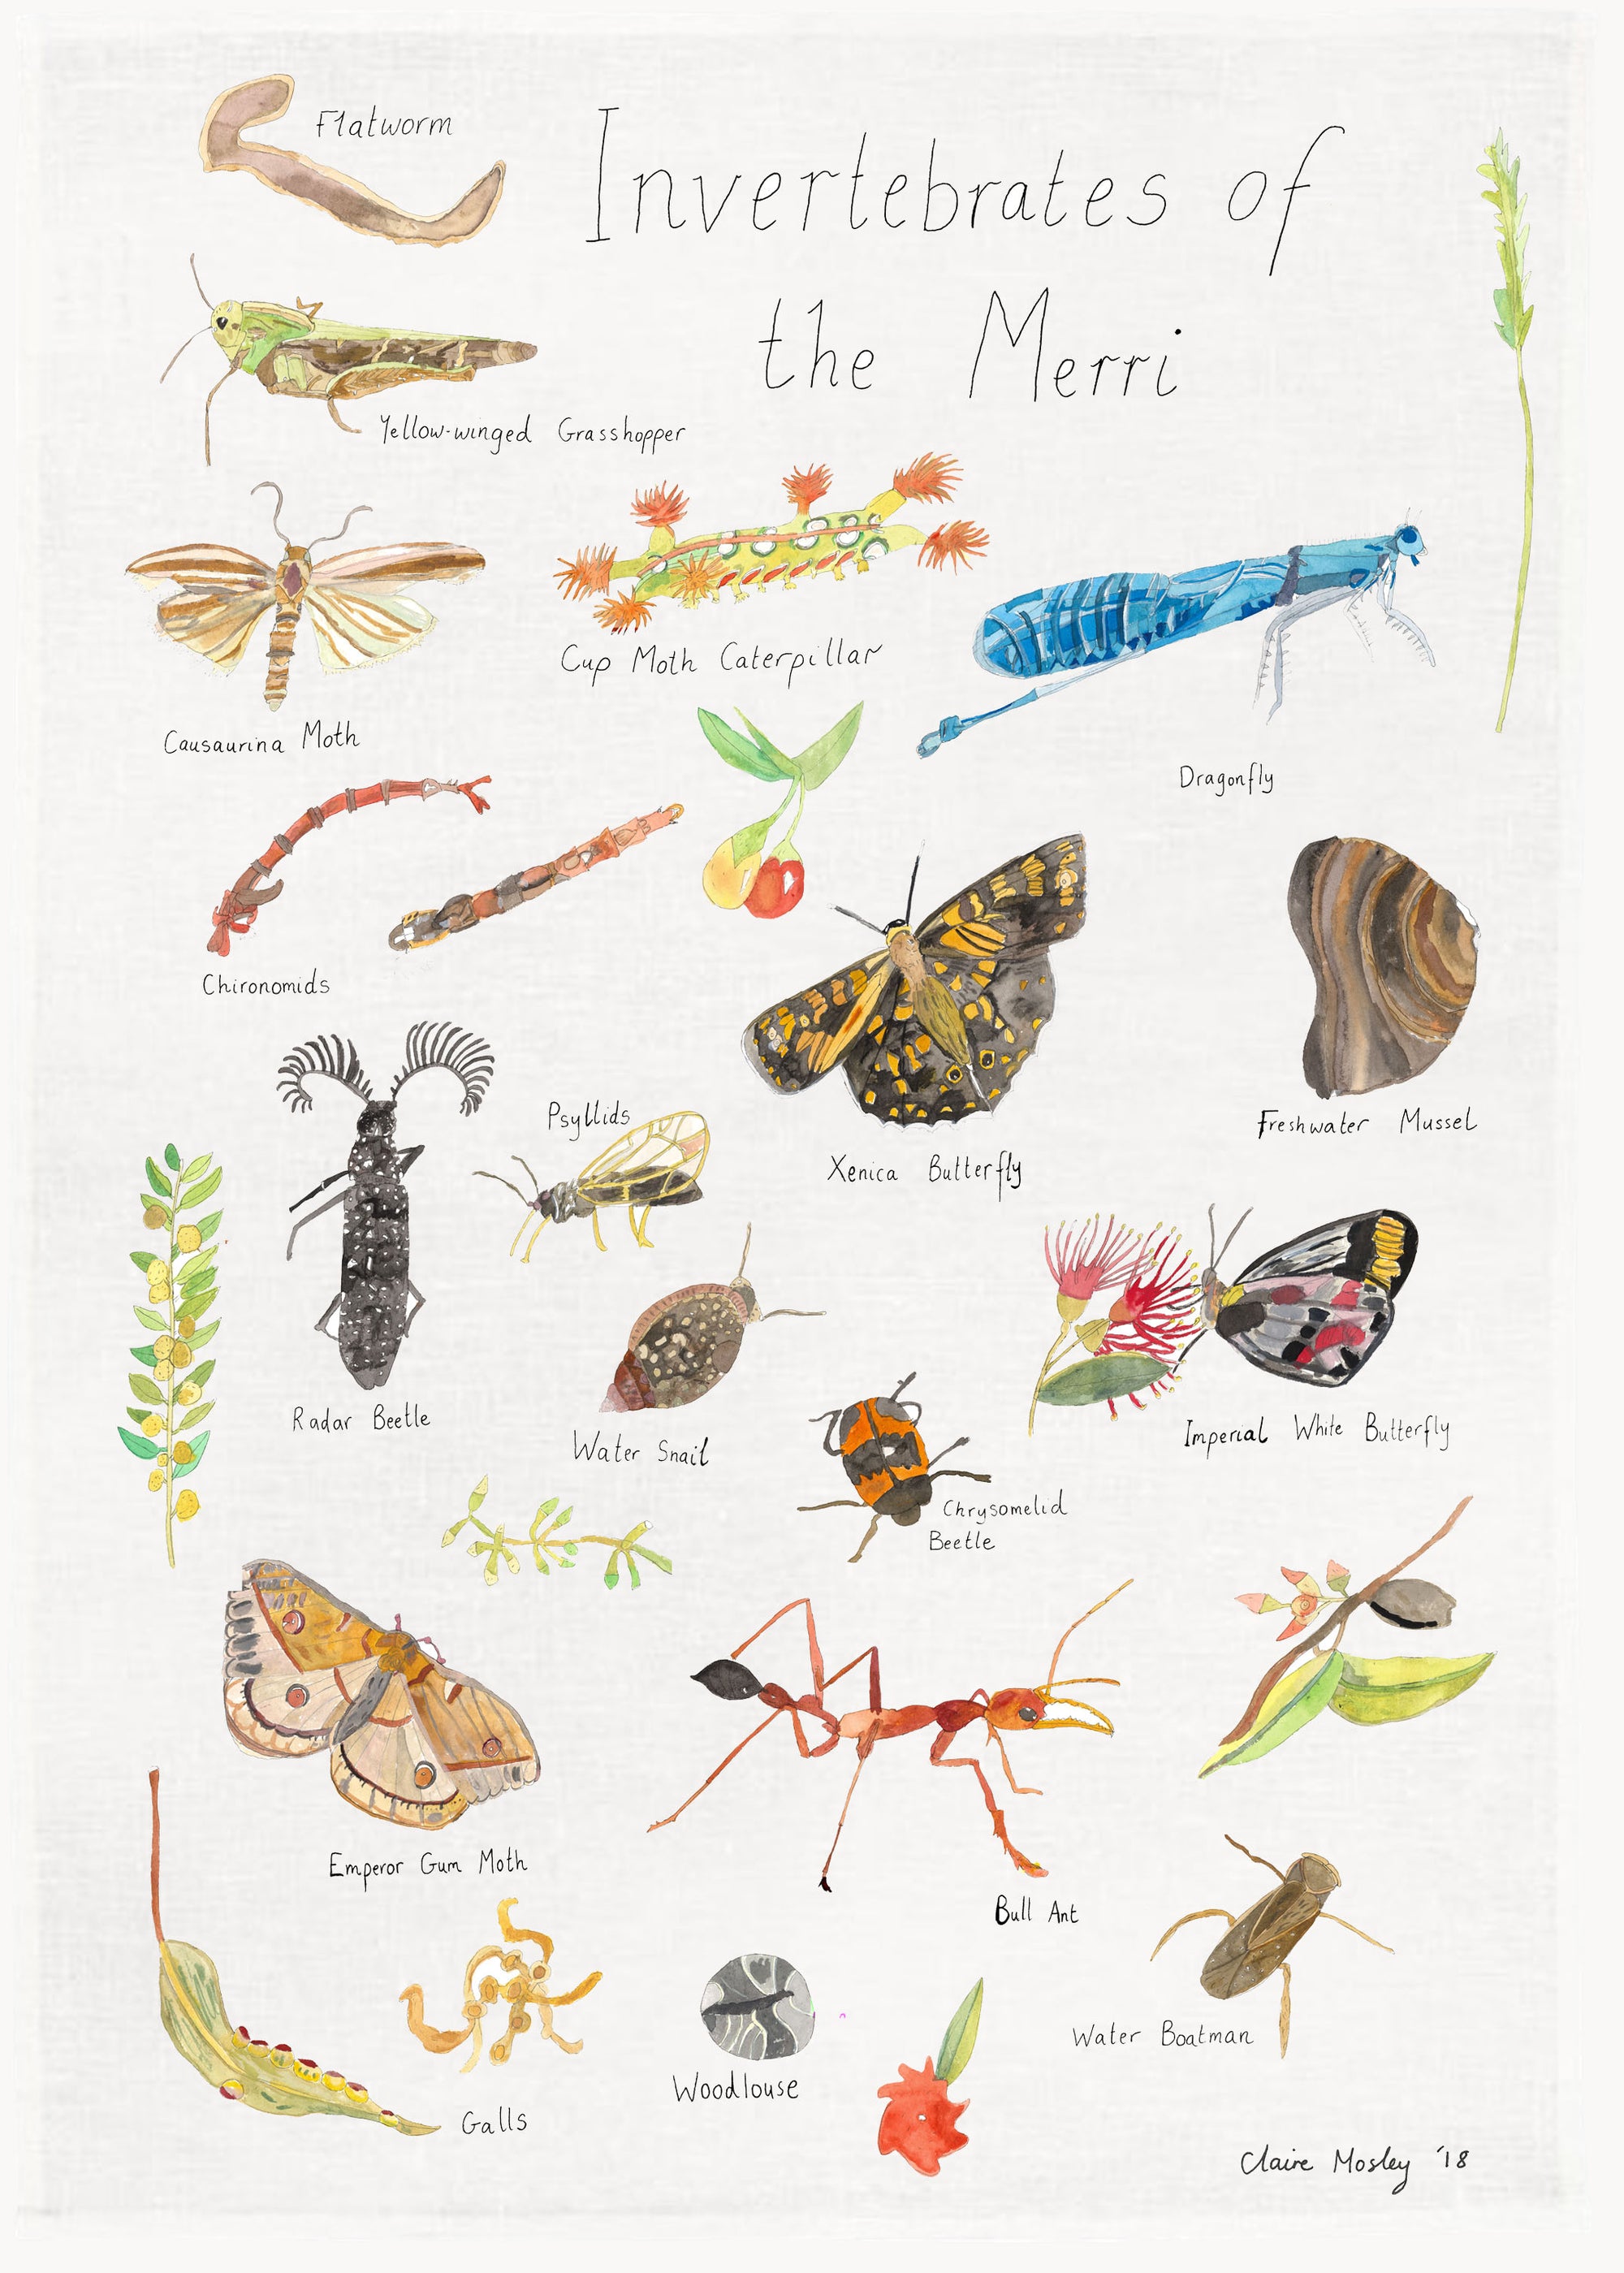 Flatworm
Invertebrates of
the Merri
Yellow-winged Grasshopper
Cup Moth Caterpillar
Causaurina Moth
Dragonfly
Chironomids
Psyllids
Freshwater Mussel
Xenica Butterfly
Radar Beetle
Water Snail
Imperial White Butterfly
Chrysomelid
Beetle
Emperor Gum Moth
Bull Ant
Water Boatman
Woodlouse
Galls
Claire Mosley '18